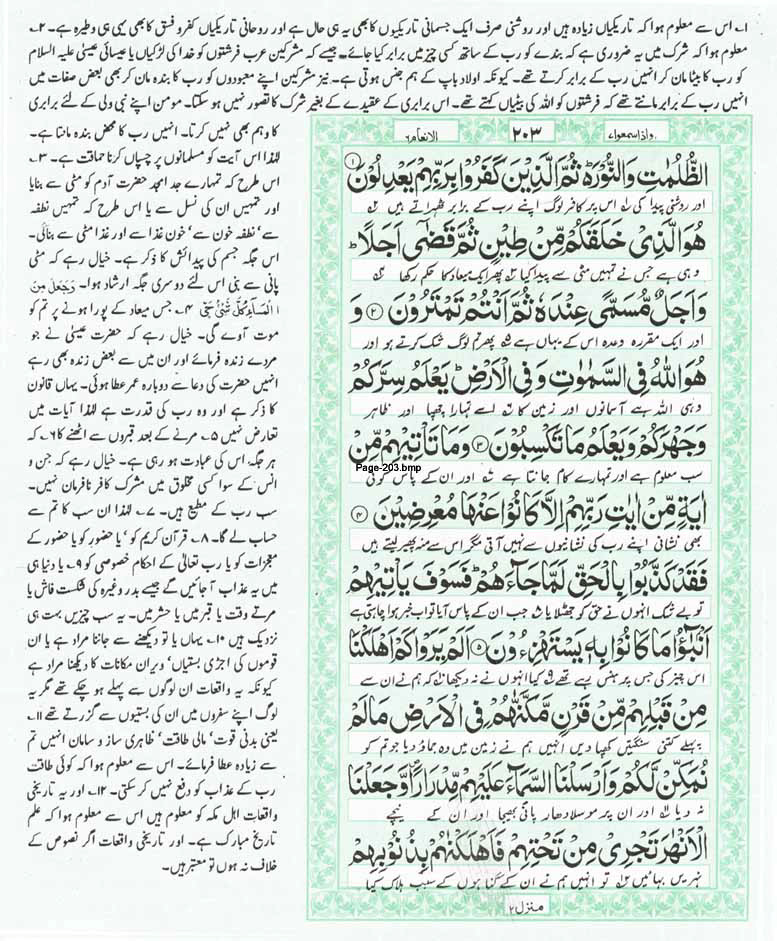 ۱؎ اس سے معلوم ہوا کہ تاریکیاں زیادہ ہیں اور روشنی صرف ایک جسمانی تاریکیوں کا بھی یہ ہی حال ہے اور روحانی تاریکیاں کفر و فسق کا بھی یہی ہی وطیرہ ہے۔ ۲؎
معلوم ہوا کہ شرک میں یہ ضروری ہے کہ بندے کو رب کے ساتھ کسی چیز میں برابر کیا جائے۔ جیسے کہ مشرکین عرب فرشتوں کو خدا کی لڑکیاں یا عیسائی عیسیٰ علیہ السلام
کو رب کا بیٹا مان کر انہیں رب کے برابر کرتے تھے۔ کیونکہ اولاد باپ کے ہم جنس ہوتی ہے۔ نیز مشرکین اپنے معبودوں کو رب کا بندہ مان کر بھی بعض صفات میں
انہیں رب کے برابر مانتے تھے کہ فرشتوں کو اللہ کی بیٹیاں کہتے تھے۔ اس برابری کے عقیدے کے بغیر شرک کا تصور نہیں ہو سکتا۔ مومن اپنے نبی ولی کے لئے برابری
کا وہم بھی نہیں کرتا۔ انہیں رب کا محض بندہ مانتا ہے۔
لہٰذا اس آیت کو مسلمانوں پر چسپاں کرنا حماقت ہے۔ ۳؎
اس طرح کہ تمہارے جد امجد حضرت آدم کو مٹی سے بنایا
اور تمہیں ان کی نسل سے یا اس طرح کہ تمہیں نطفہ
سے‘ نطفہ خون سے‘ خون غذا سے اور غذا مٹی سے بنائی۔
اس جگہ جسم کی پیدائش کا ذکر ہے۔ خیال رہے کہ مٹی
پانی سے بنی اس لئے دوسری جگہ ارشاد ہوا۔ وَجَعَلْنَا مِنَ
الْمَآءِ كُلَّ شَیْءٍ حَیٍّ ۴؎ جس میعاد کے پورا ہونے پر تم کو
موت آوے گی۔ خیال رہے کہ حضرت عیسیٰ نے جو
مردے زندہ فرمائے اور ان میں سے بعض زندہ بھی رہے
انہیں حضرت کی دعا سے دوبارہ عمر عطا ہوئی۔ یہاں قانون
کا ذکر ہے اور وہ رب کی قدرت ہے لہٰذا آیات میں
تعارض نہیں ۵؎ مرنے کے بعد قبروں سے اٹھنے کا ۶؎ کہ
ہر جگہ اس کی عبادت ہو رہی ہے۔ خیال رہے کہ جن و
انس کے سوا کسی مخلوق میں مشرک کافر نافرمان نہیں۔
سب رب کے مطیع ہیں۔ ۷؎ لہٰذا ان سب کا تم سے
حساب لے گا۔ ۸؎ قرآن کریم کو‘ یا حضور کو یا حضور کے
معجزات کو یا رب تعالیٰ کے احکام خصوصی کو ۹؎ یا دنیا ہی
میں یہ عذاب آ جائیں گے جیسے بدر وغیرہ کی شکست فاش یا
مرتے وقت یا قبر میں یا حشر میں۔ یہ سب چیزیں بہت ہی
نزدیک ہیں ۱۰؎ یہاں یا تو دیکھنے سے جاننا مراد ہے یا ان
قوموں کی اجڑی بستیاں‘ ویران مکانات کا دیکھنا مراد ہے
کیونکہ یہ واقعات ان لوگوں سے پہلے ہو چکے تھے مگر یہ
لوگ اپنے سفروں میں ان کی بستیوں سے گزرتے تھے ۱۱؎
یعنی بدنی قوت‘ مالی طاقت‘ ظاہری ساز و سامان انہیں تم
سے زیادہ عطا فرمائے۔ اس سے معلوم ہوا کہ کوئی طاقت
رب کے عذاب کو دفع نہیں کر سکتی۔ ۱۲؎ اور یہ تاریخی
واقعات اہل مکہ کو معلوم ہیں اس سے معلوم ہوا کہ علم
تاریخ مبارک ہے۔ اور تاریخی واقعات اگر نصوص کے
خلاف نہ ہوں تو معتبر ہیں۔
واذا سمعوا ۷ ۲۰۳ الانعام ۶
الظُّلُمٰتِ وَالنُّوْرَ ۬ؕ ثُمَّ الَّذِیْنَ كَفَرُوْا بِرَبِّهِمْ یَعْدِلُوْنَ ۱
اور روشنی پیدا کی ۱؎ اس پر کافر لوگ اپنے رب کے برابر ٹھہراتے ہیں ۲؎
هُوَ الَّذِیْ خَلَقَكُمْ مِّنْ طِیْنٍ ثُمَّ قَضٰۤی اَجَلًا ؕ
وہی ہے جس نے تمہیں مٹی سے پیدا کیا ۳؎ پھر ایک میعاد کا حکم رکھا ۴؎
وَاَجَلٌ مُّسَمًّی عِنْدَهٗ ثُمَّ اَنْتُمْ تَمْتَرُوْنَ ۲ وَ
اور ایک مقررہ وعدہ اس کے یہاں ہے ۵؎ پھر تم لوگ شک کرتے ہو اور
هُوَ اللّٰهُ فِی السَّمٰوٰتِ وَفِی الْاَرْضِ ؕ یَعْلَمُ سِرَّكُمْ
وہی اللہ ہے آسمانوں اور زمین کا ۶؎ اسے تمہارا چھپا اور ظاہر
وَجَهْرَكُمْ وَیَعْلَمُ مَا تَكْسِبُوْنَ ۳ وَمَا تَاْتِیْهِمْ مِّنْ
سب معلوم ہے اور تمہارے کام جانتا ہے ۷؎ اور ان کے پاس کوئی
Page-203.bmp
اٰیَةٍ مِّنْ اٰیٰتِ رَبِّهِمْ اِلَّا كَانُوْا عَنْهَا مُعْرِضِیْنَ ۴
بھی نشانی اپنے رب کی نشانیوں سے نہیں آتی مگر اس سے منہ پھیر لیتے ہیں
فَقَدْ كَذَّبُوْا بِالْحَقِّ لَمَّا جَآءَهُمْ ؕ فَسَوْفَ یَاْتِیْهِمْ
تو بے شک انہوں نے حق کو جھٹلایا ۸؎ جب ان کے پاس آیا تو اب خبر ہوا چاہتی ہے
اَنْۢبٰٓؤُا مَا كَانُوْا بِهٖ یَسْتَهْزِءُوْنَ ۵ اَلَمْ یَرَوْا كَمْ اَهْلَكْنَا
اس چیز کی جس پر ہنس رہے تھے ۹؎ کیا انہوں نے نہ دیکھا ۱۰؎ کہ ہم نے ان سے
مِنْ قَبْلِهِمْ مِّنْ قَرْنٍ مَّكَّنّٰهُمْ فِی الْاَرْضِ مَا لَمْ
پہلے کتنی سنگتیں کھپا دیں انہیں ہم نے زمین میں وہ جماؤ دیا جو تم کو
نُمَكِّنْ لَّكُمْ وَاَرْسَلْنَا السَّمَآءَ عَلَیْهِمْ مِّدْرَارًا ۪ وَّجَعَلْنَا
نہ دیا ۱۱؎ اور ان پر موسلا دھار پانی بھیجا اور ان کے نیچے
الْاَنْهٰرَ تَجْرِیْ مِنْ تَحْتِهِمْ فَاَهْلَكْنٰهُمْ بِذُنُوْبِهِمْ
نہریں بہائیں ۱۲؎ تو انہیں ہم نے ان کے گناہوں کے سبب ہلاک کیا
منزل ۲